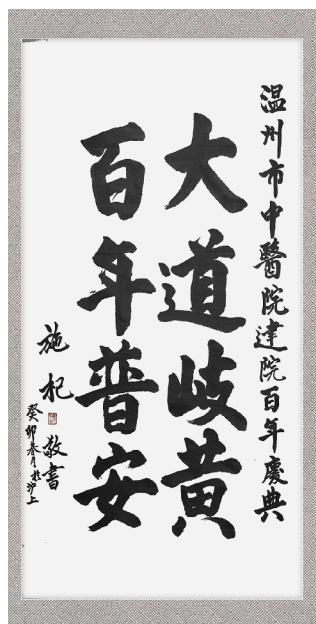 温州市中醫院建院百年慶典
大道岐黄
百年普安
施杞敬書
癸卯春月於沪上